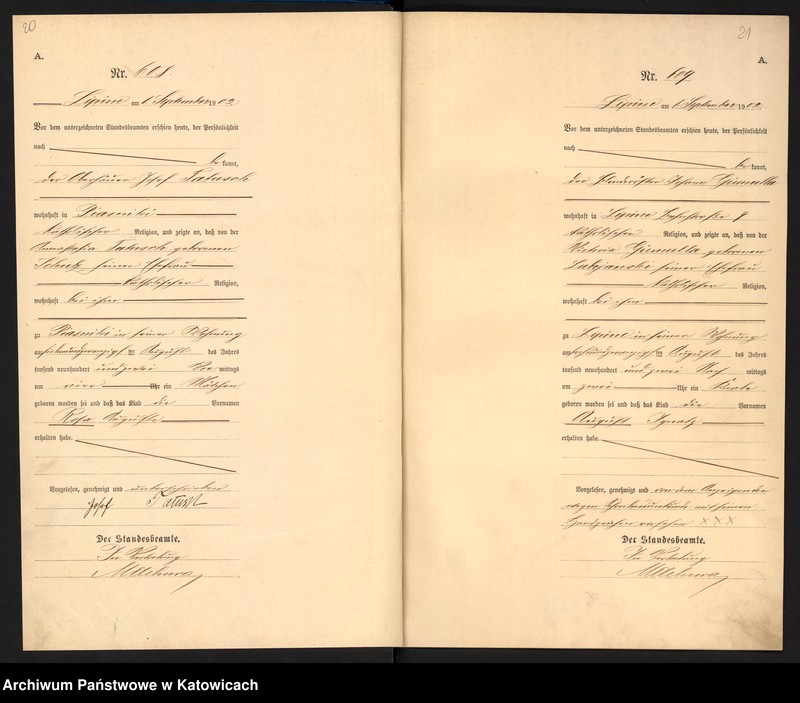 20
A.
Nr. 608.
Lipine am 1 September 1902.
Vor dem unterzeichneten Standesbeamten erschien heute, der Persönlichkeit
nach
be kannt,
der Oberhäuer Josef Tatusch
wohnhaft in Piasniki
katholischer Religion, und zeigte an, daß von der
Tatusch geborenen
seiner Ehefrau
katholischer Religion,
wohnhaft bei ihm
zu Piasniki in seiner Wohnung
am siebenundzwanzigsten August des Jahres
tausend neunhundert und zwei Vor mittags
um vier Uhr ein Mädchen
geboren worden sei und daß das Kind die Vornamen
Rosa Auguste
erhalten habe.
Vorgelesen, genehmigt und unterschrieben
Josef Tatusch
Der Standesbeamte.
In Vertretung
21
A.
Nr. 609.
Lipine am 1 September 1902.
Vor dem unterzeichneten Standesbeamten erschien heute, der Persönlichkeit
nach
be kannt,
der Johann
wohnhaft in Lipine
katholischer Religion, und zeigte an, daß von der
Victoria geborenen
seiner Ehefrau
katholischer Religion,
wohnhaft bei ihm
zu Lipine in seiner Wohnung
am August des Jahres
tausend neunhundert und zwei Nach mittags
um zwei Uhr ein Knabe
geboren worden sei und daß das Kind die Vornamen
August Ignatz
erhalten habe.
Vorgelesen, genehmigt und von dem Anzeigenden
wegen Schreibensunkunde mit seinem
Handzeichen versehen XXX
Der Standesbeamte.
In Vertretung
Archiwum Państwowe w Katowicach